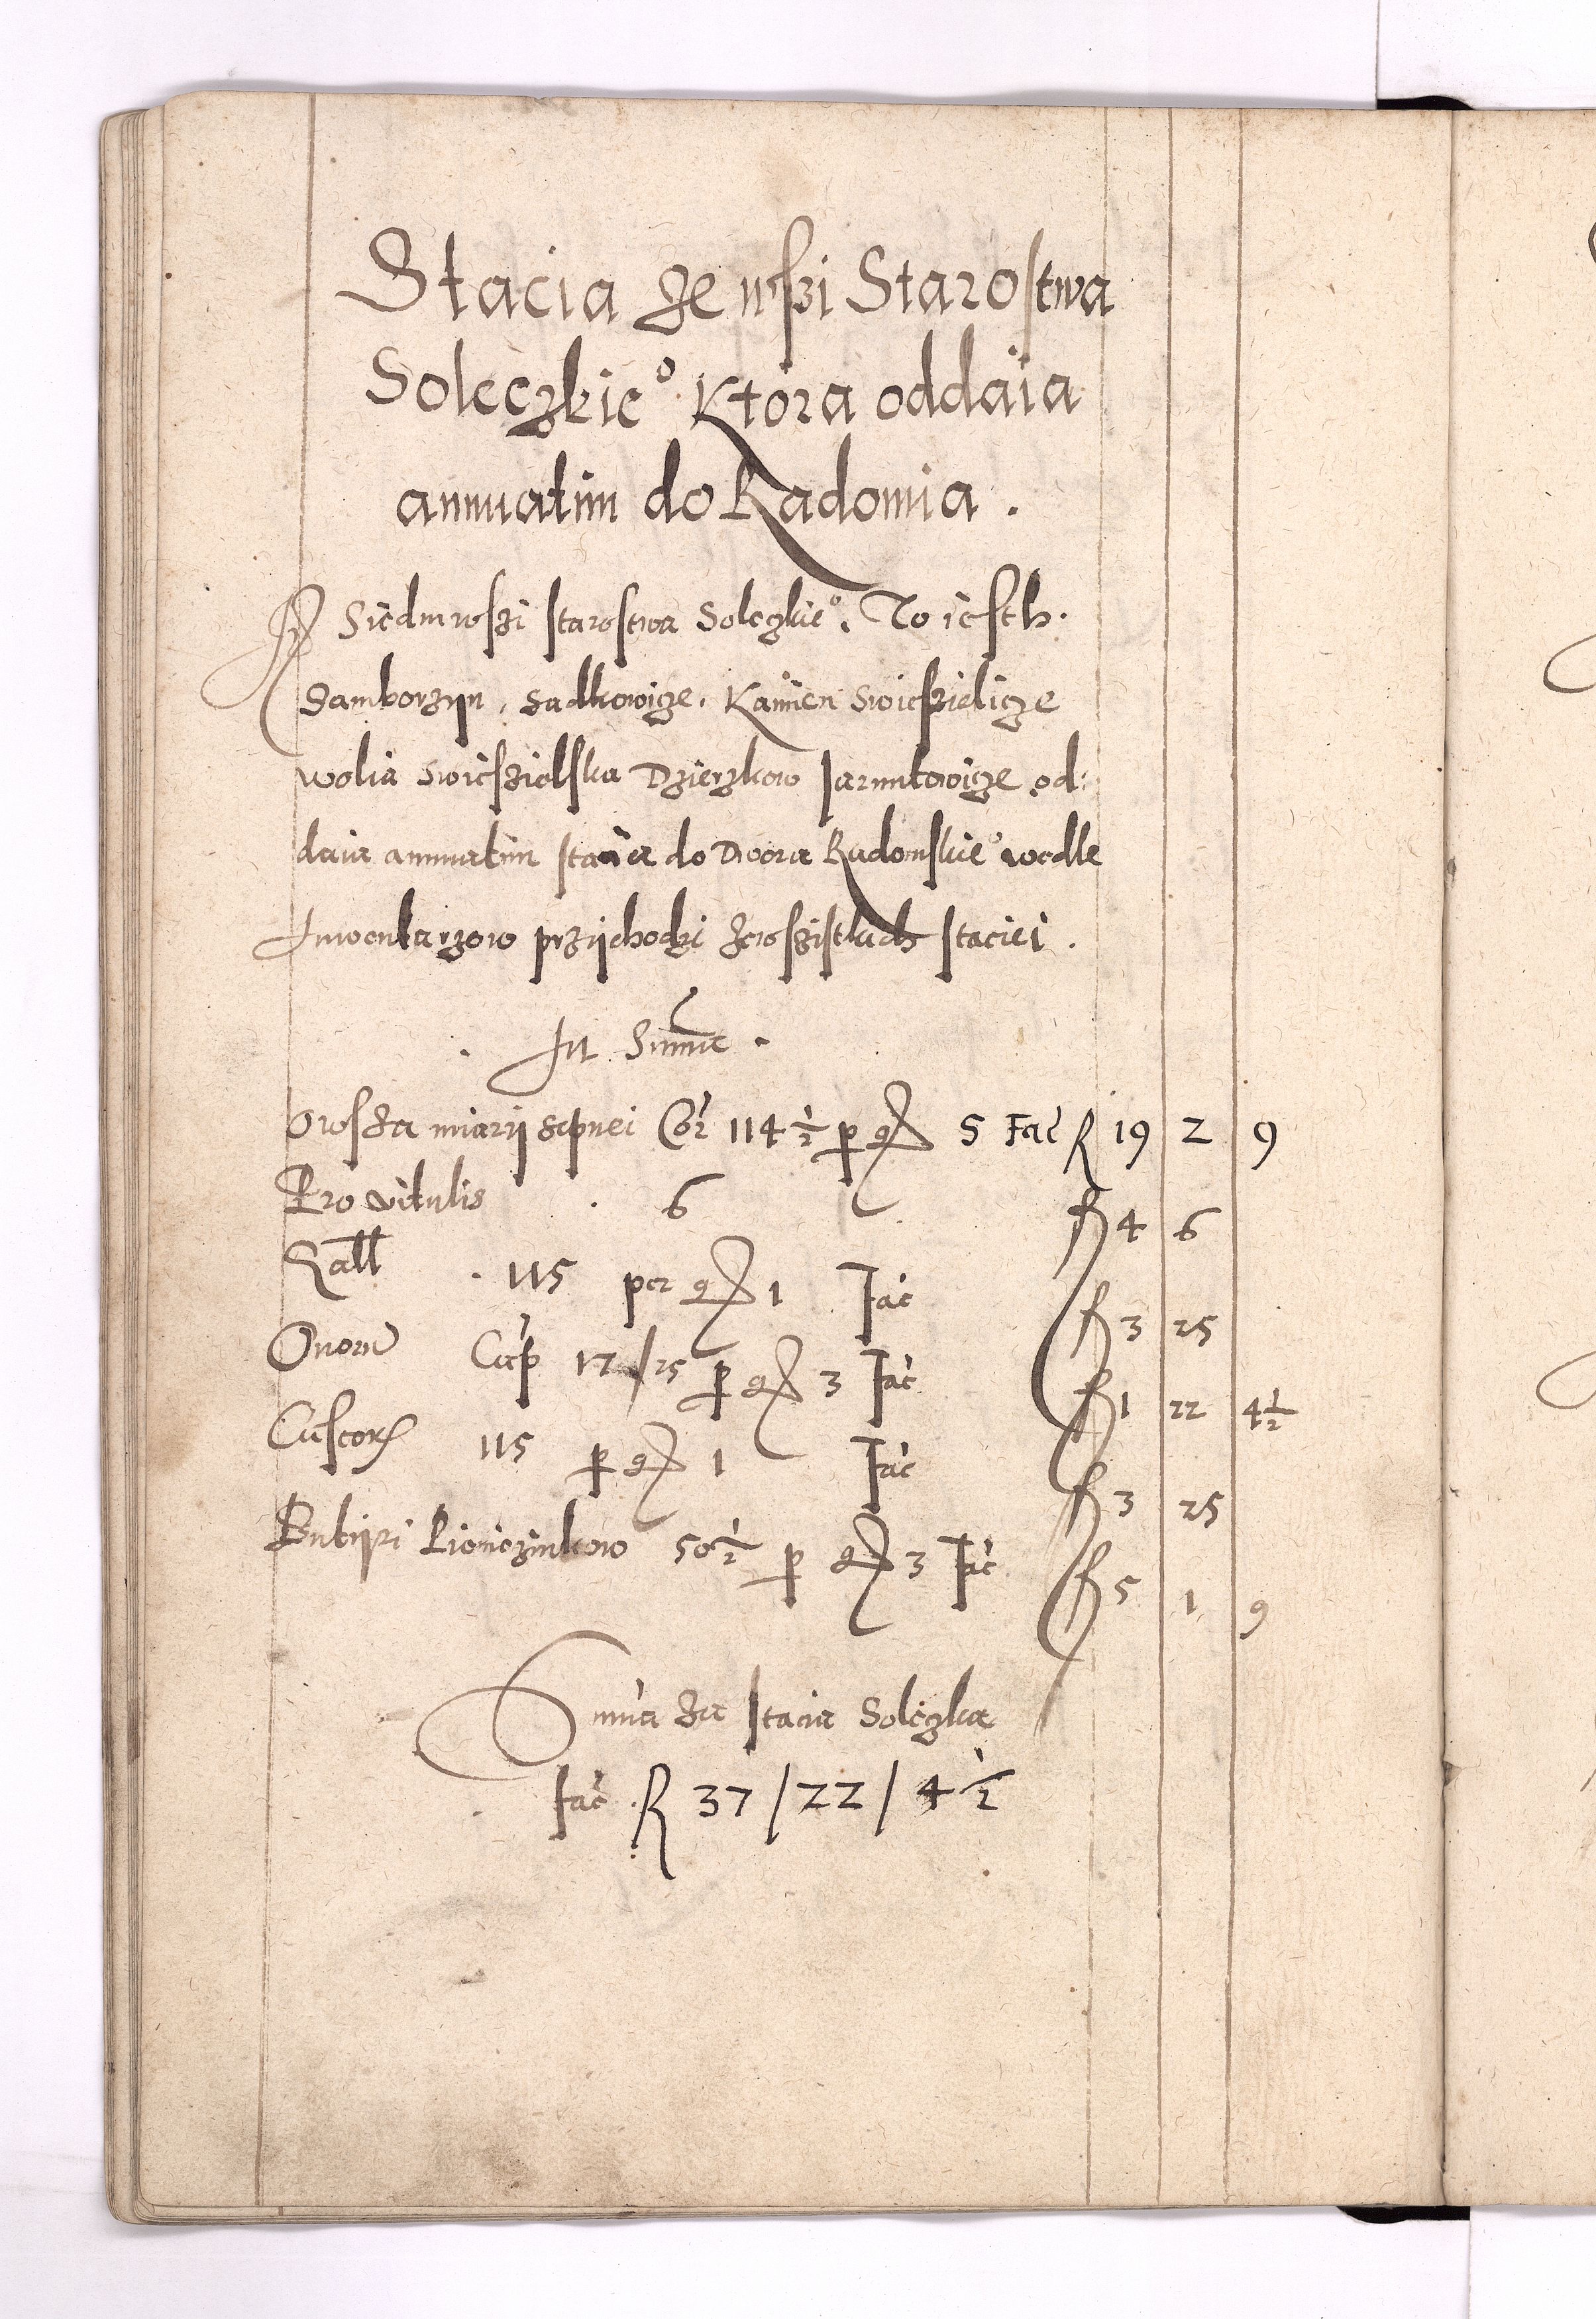 Stacia ze wszi Starostwa
Soleczkie° Ktora oddaia
annuatim do Radomia .
Siedm wszi starostwa Soleczkie°. To iesth.
Samborzyn, Sadkowicze. Kamien Swieszielicze
wolia Swieszielska Dzierzkow Jarunthowicze od:
daia annuatim stacia do Dwora Radomskie° wedle
Inwentarzow przychodzi zewszistkich staciei .
. In Summa .
Owsza miary sepnei Cor 114 1/2 p g 5 Fac R 19 | 2 | 9
Pro vitulis . 6 f 4 | 6
Gall . 115 per g 1 Fac f 3 | 25
Ovorum Cap 17 / 25 p g 3 Fac f 1 | 22 | 4 1/2
Caseor 115 p g 1 Fac f 3 | 25
50 1/2 p g 3 Fac f 5 | 1 | 9
Summa za stacia Soleczka
fac R 37 / 22 / 4 1/2